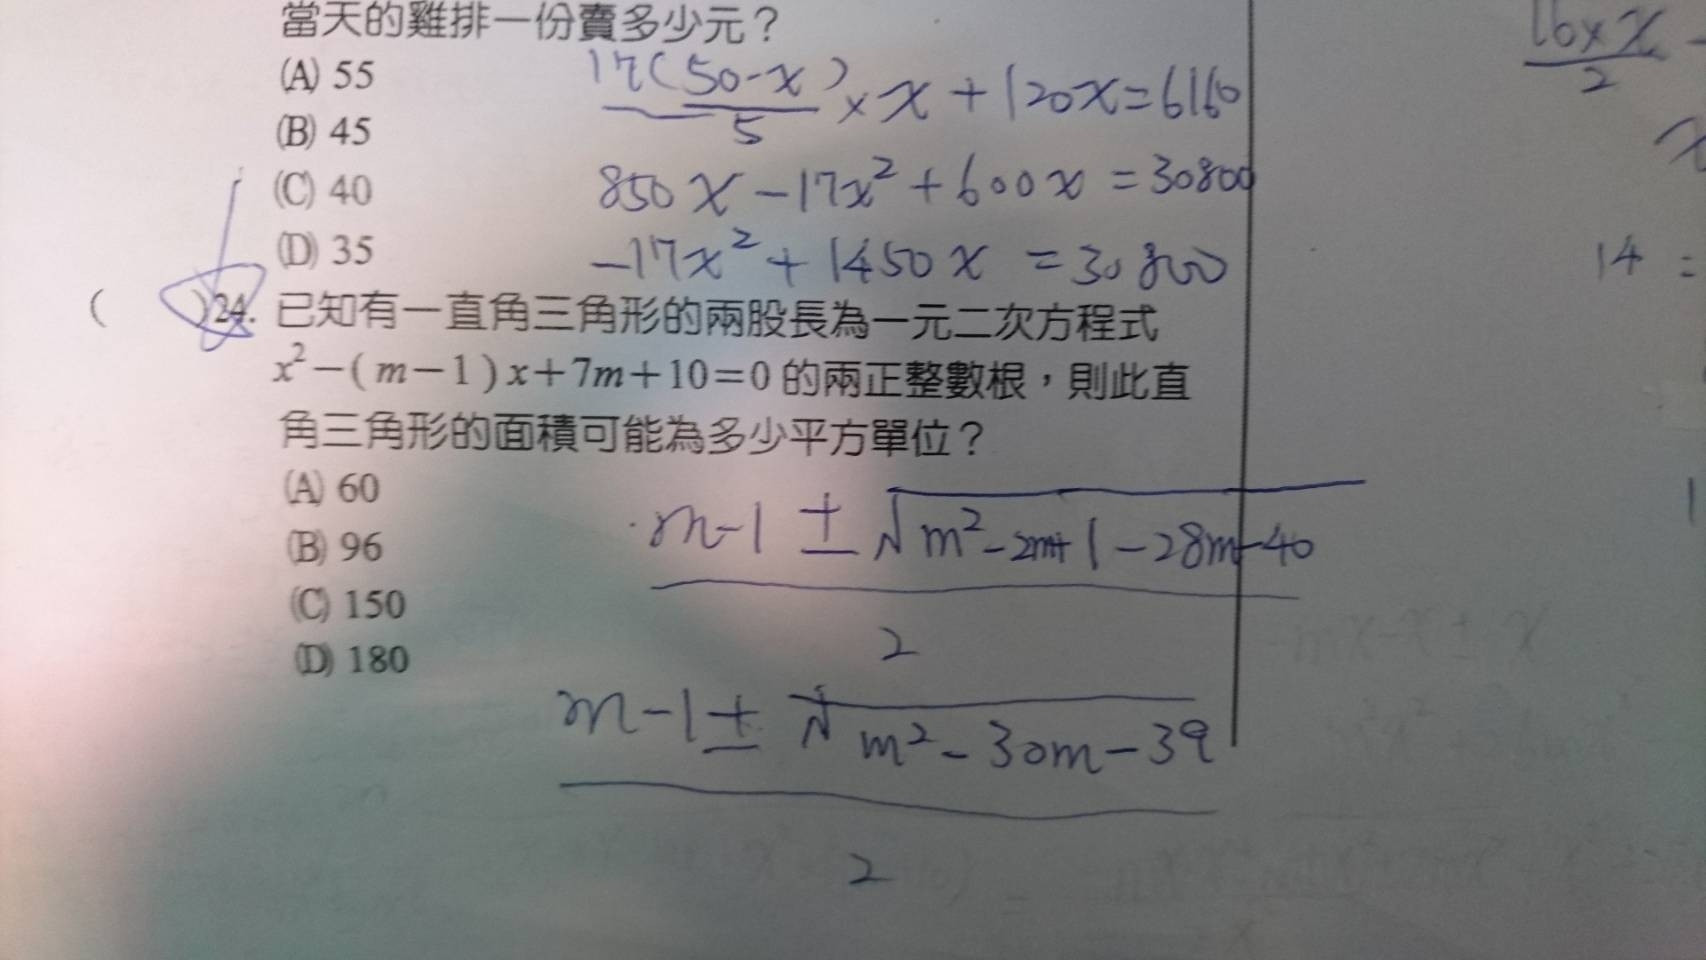 當天的雞排一份賣多少元？
(A) 55
(B) 45
(C) 40
(D) 35
17(50-x)/5 × x + 120x = 6160
850x - 17x² + 600x = 30800
-17x² + 1450x = 30800
16×x/2
14 =
( )24. 已知有一直角三角形的兩股長為一元二次方程式
x²－(m－1)x＋7m＋10＝0 的兩正整數根，則此直
角三角形的面積可能為多少平方單位？
(A) 60
(B) 96
(C) 150
(D) 180
m-1 ± √m²-2m+1-28m-40
2
m-1 ± √m²-30m-39
2